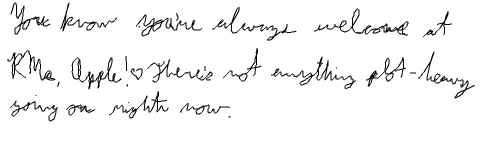 You know you're always welcome at
RMa, Apple!♡ There's not anything plot-heavy
going on right now.